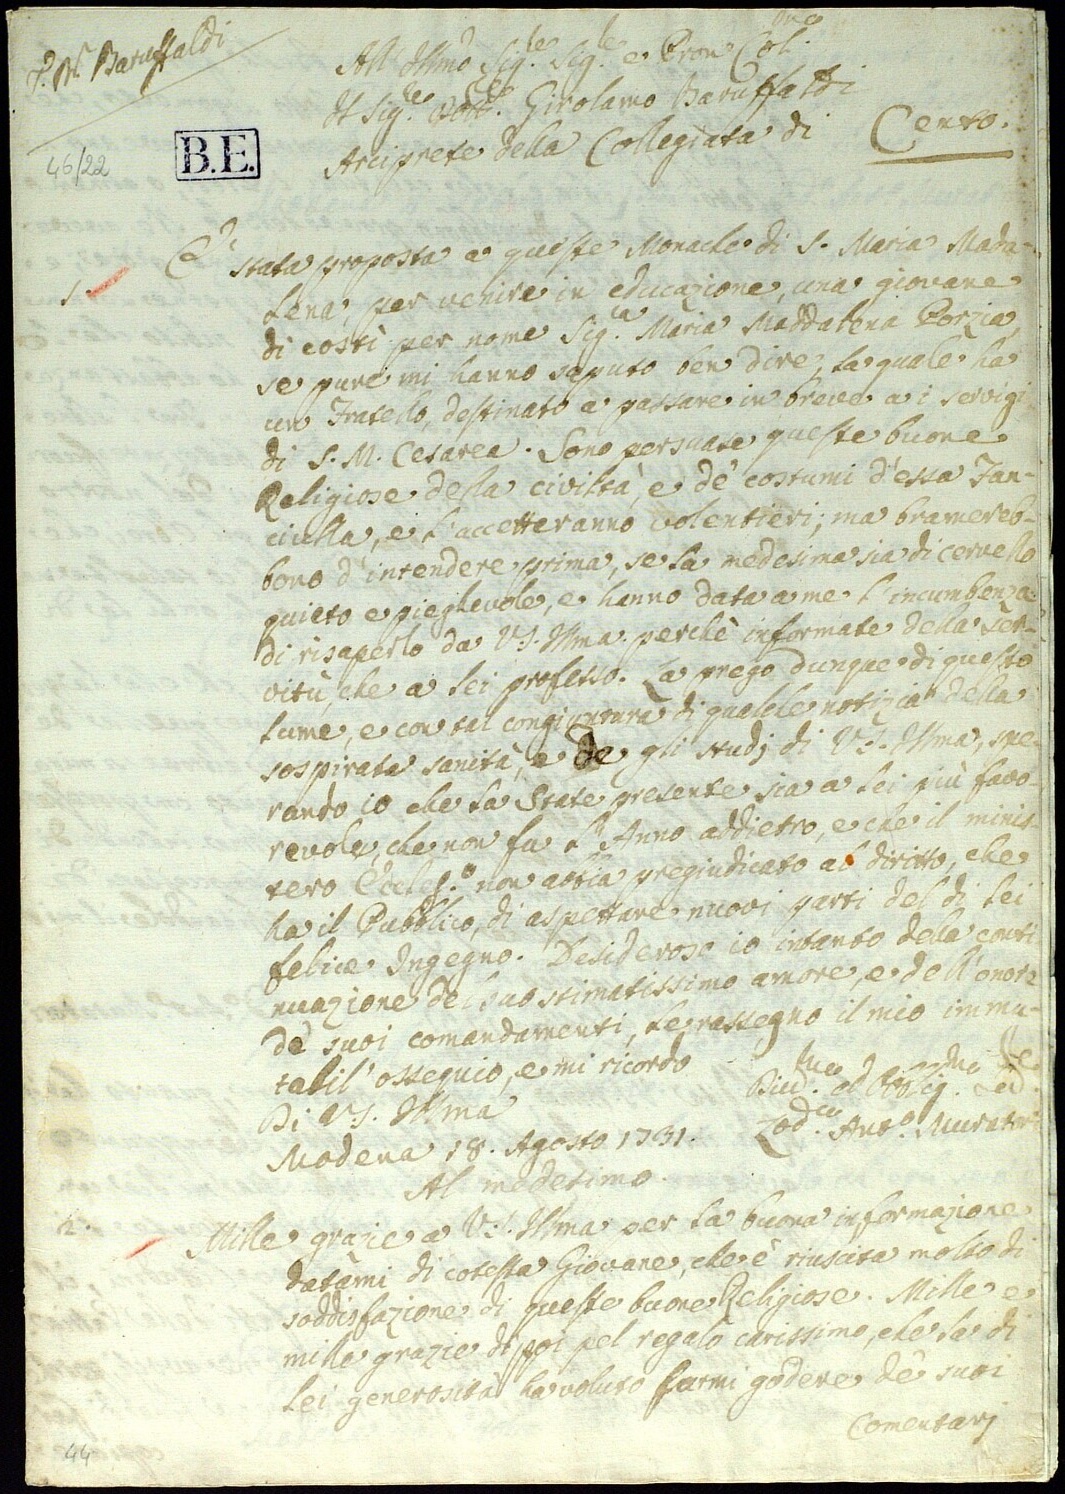 Baruffaldi
46/22
B.E.
All' Illmo Sig.re Sig.re e Pron Col.mo
Il Sig.re Dott.re Girolamo Baruffaldi
Arciprete della Collegiata di Cento.
1.
È stata proposta a queste Monache di S. Maria Mada-
lena, per venire in educazione, una giovane
di costì per nome Sig.ra Maria Maddalena Porzia,
se pure mi hanno saputo ben dire, la quale ha
un Fratello, destinato a passare in breve a i servigi
di S. M. Cesarea. Sono persuase queste buone
Religiose della civiltà, e de' costumi d'essa Fan-
ciulla, e l'accetteranno volentieri; ma bramereb-
bono d'intendere prima, se la medesima sia di cervello
quieto e pieghevole, e hanno data a me l'incumbenza
di risaperlo da V.S. Illma perchè informate della Ser-
vitù, che a lei professo. La prego dunque di questo
lume, e con tal congiuntura di qualche notizia della
sospirata sanità, e de gli studj di V.S. Illma, spe-
rando io che la State presente sia a lei più favo-
revole, che non fu l'Anno addietro, e che il minis-
tero Eccles.o non abbia pregiudicato al diritto, che
ha il Pubblico, di aspettare nuovi parti del di lei
felice Ingegno. Desideroso io intanto della conti-
nuazione del suo stimatissimo amore, e dell'onore
de' suoi comandamenti, le rassegno il mio immu-
tabil' ossequio, e mi ricordo
Di V.S. Illma
Modena 18. Agosto 1731.
Div.mo ed Obblig.mo Se.re
Lod.co Ant.o Muratori
Al medesimo.
2.
Mille grazie a V.S. Illma per la buona informazione
datami di cotesta Giovane, che è riuscita molto di
soddisfazione di queste buone Religiose. Mille e
mille grazie di poi pel regalo carissimo, che la di
lei generosità ha voluto farmi godere de' suoi
Comentarj
44